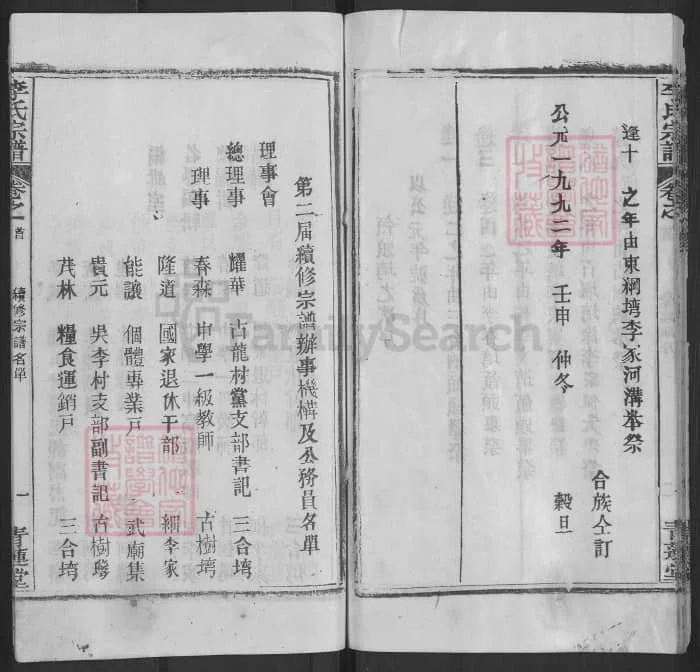 李氏宗譜
逢十 之年由東綱塆李家河溝奉祭
合族仝訂
公元一九九二年 壬申 仲冬 穀旦
第二届續修宗譜辦事機構及公務員名單
理事會
總理事 耀華 古龍村黨支部書記 三合塆
理事 春森 中學一級教師 古樹塆
隆道 國家退休干部 綱李家
能讓 個體專業戶 武廟集
貴元 吳李村支部副書記 古樹塆
茂林 糧食運銷戶 三合塆
李氏宗譜 卷之一 首 續修宗譜名單 一 青蓮堂
FamilySearch